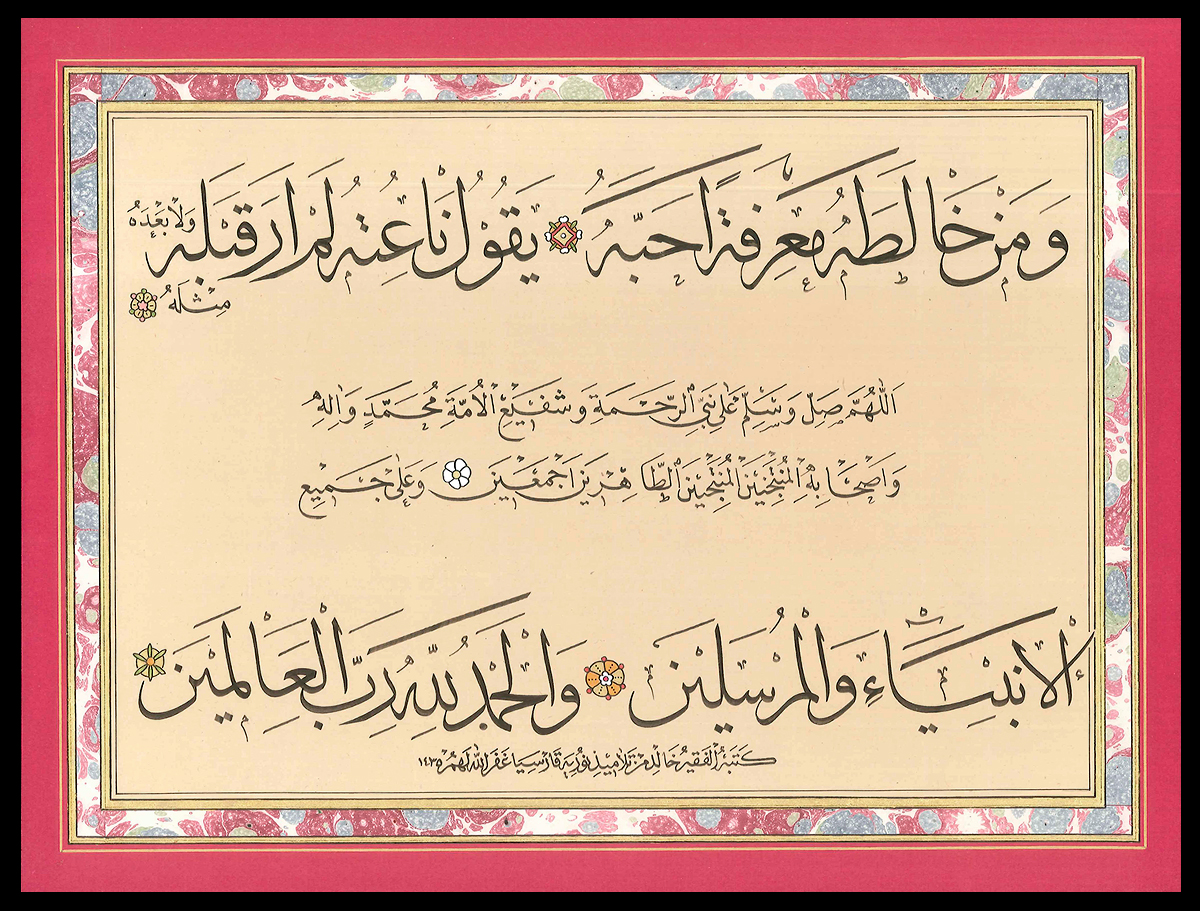 وَمَنْ خَالَطَهُ مَعْرِفَةً اَحَبَّهُ يَقُولُ نَاعِتُهُ لَمْ اَرَ قَبْلَهُ وَلَا بَعْدَهُ
مِثْلَهُ
اَللّٰهُمَّ صَلِّ وَسَلِّمْ عَلٰى نَبِيِّ الرَّحْمَةِ وَشَفِيْعِ الْاُمَّةِ مُحَمَّدٍ وَاٰلِهِ
وَاَصْحَابِهِ الْمُنْتَجَبِيْنَ الْمُنْتَجَبِيْنَ الطَّاهِرِيْنَ اَجْمَعِيْنَ وَعَلٰى جَمِيْعِ
الْاَنْبِيَاءِ وَالْمُرْسَلِيْنَ وَالْحَمْدُ لِلّٰهِ رَبِّ الْعَالَمِيْنَ
كَتَبَهُ الْفَقِيْرُ خَالِد مِنْ تَلَامِيْذِ نُوْرِيَة غَارْسِيَا غَفَرَ اللّٰهُ لَهُمْ ١٤٣٥